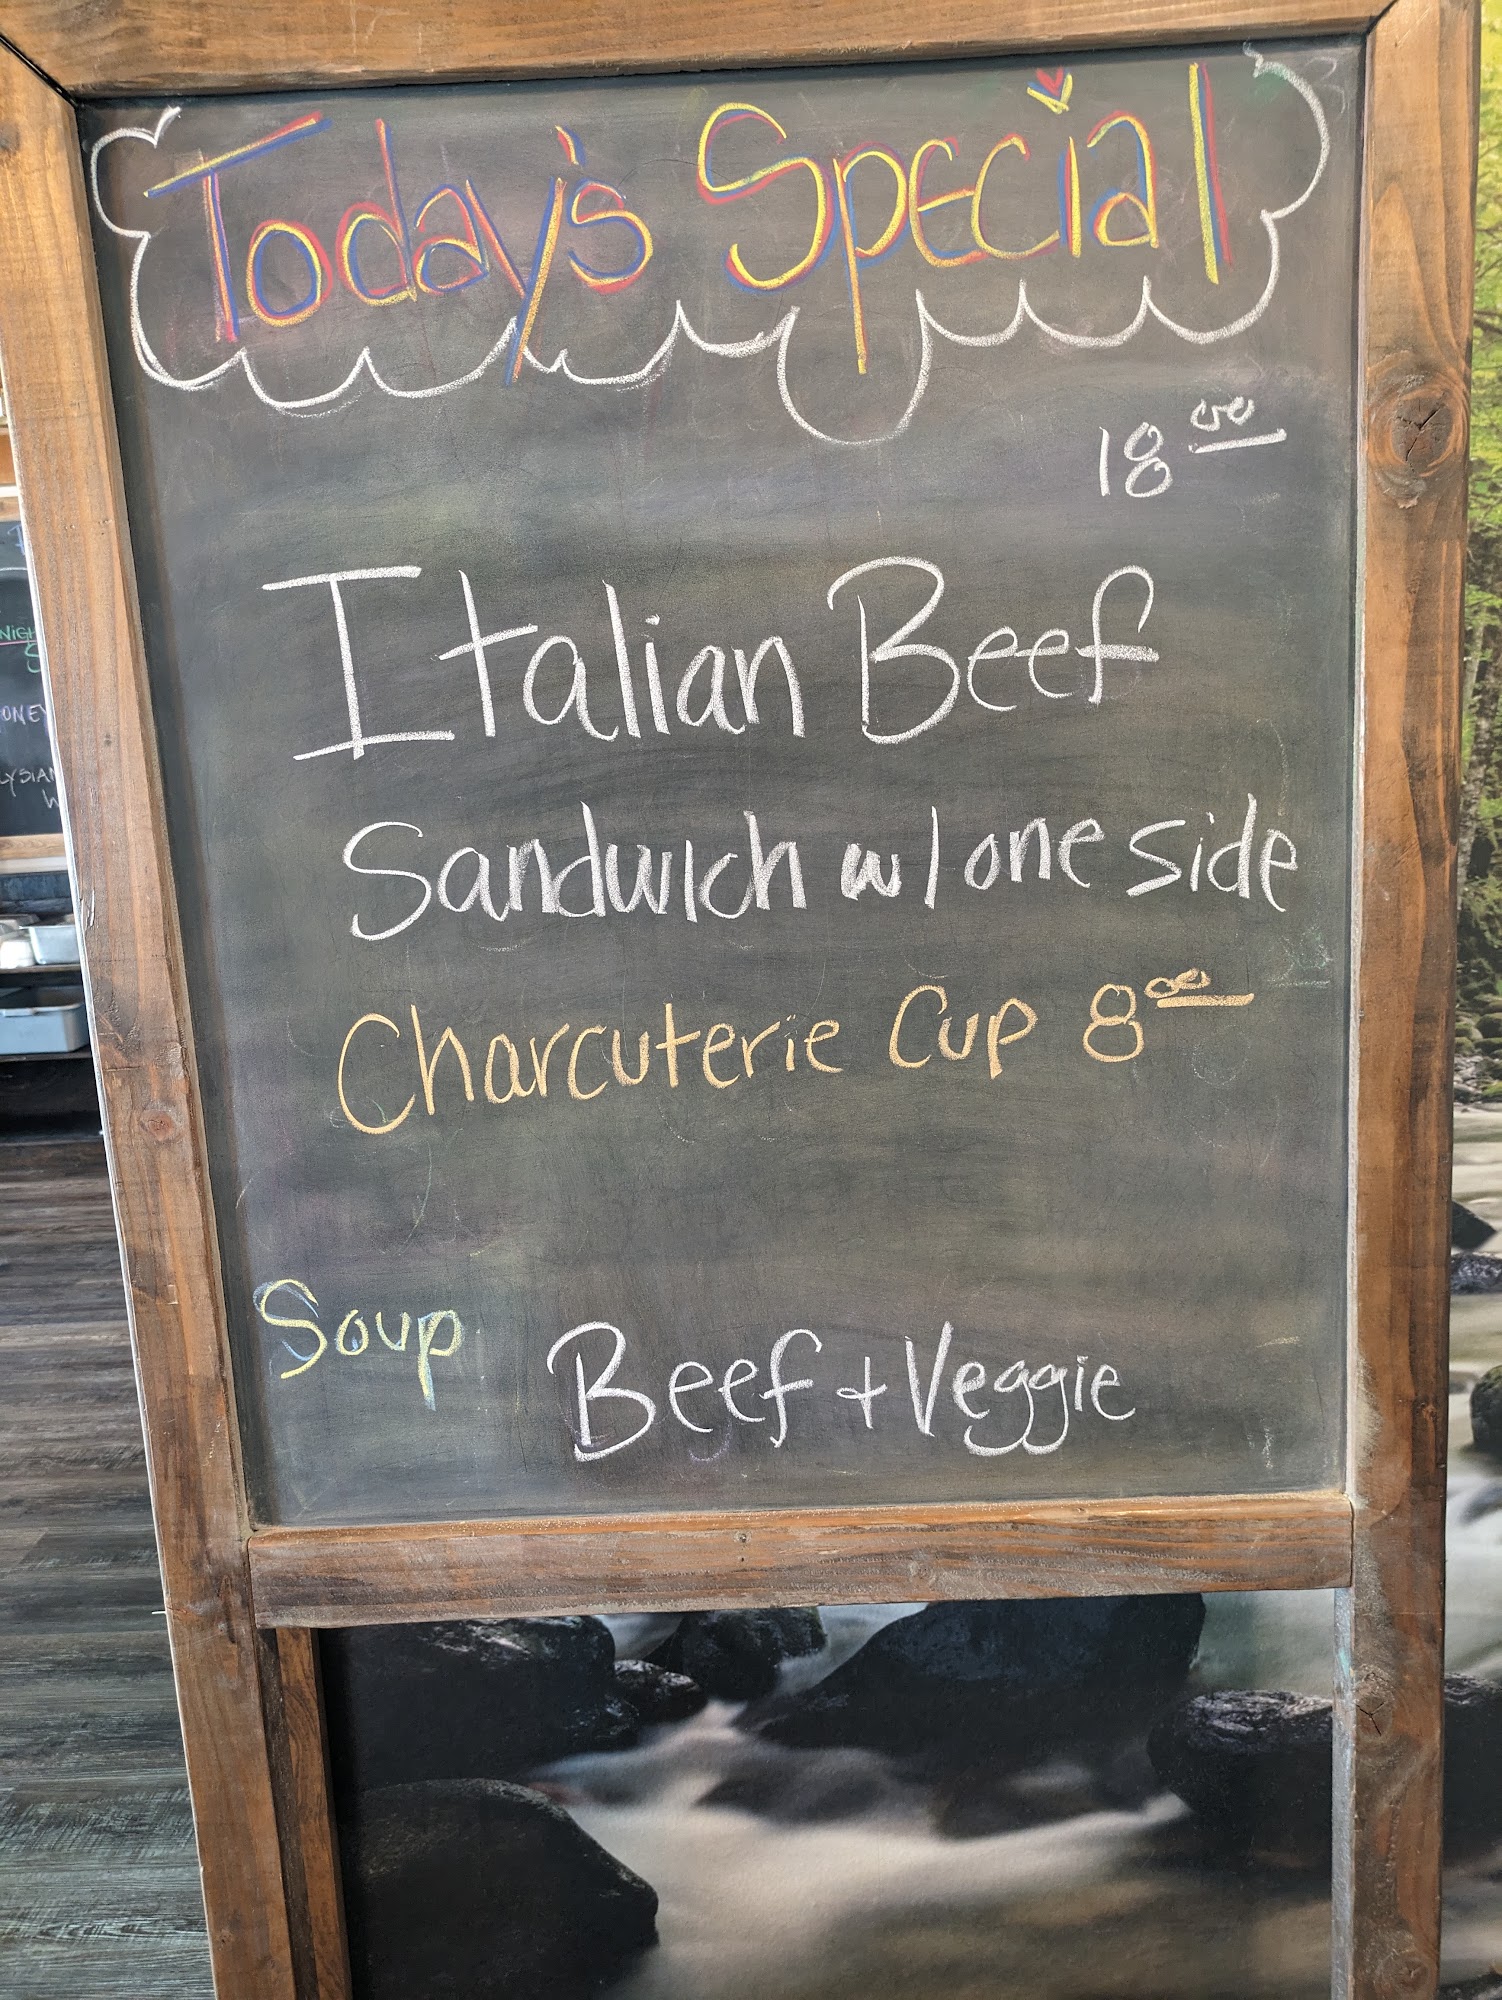 Today's Special
18 00
Italian Beef
Sandwich w/ one side
Charcuterie Cup 8 00
Soup
Beef + Veggie